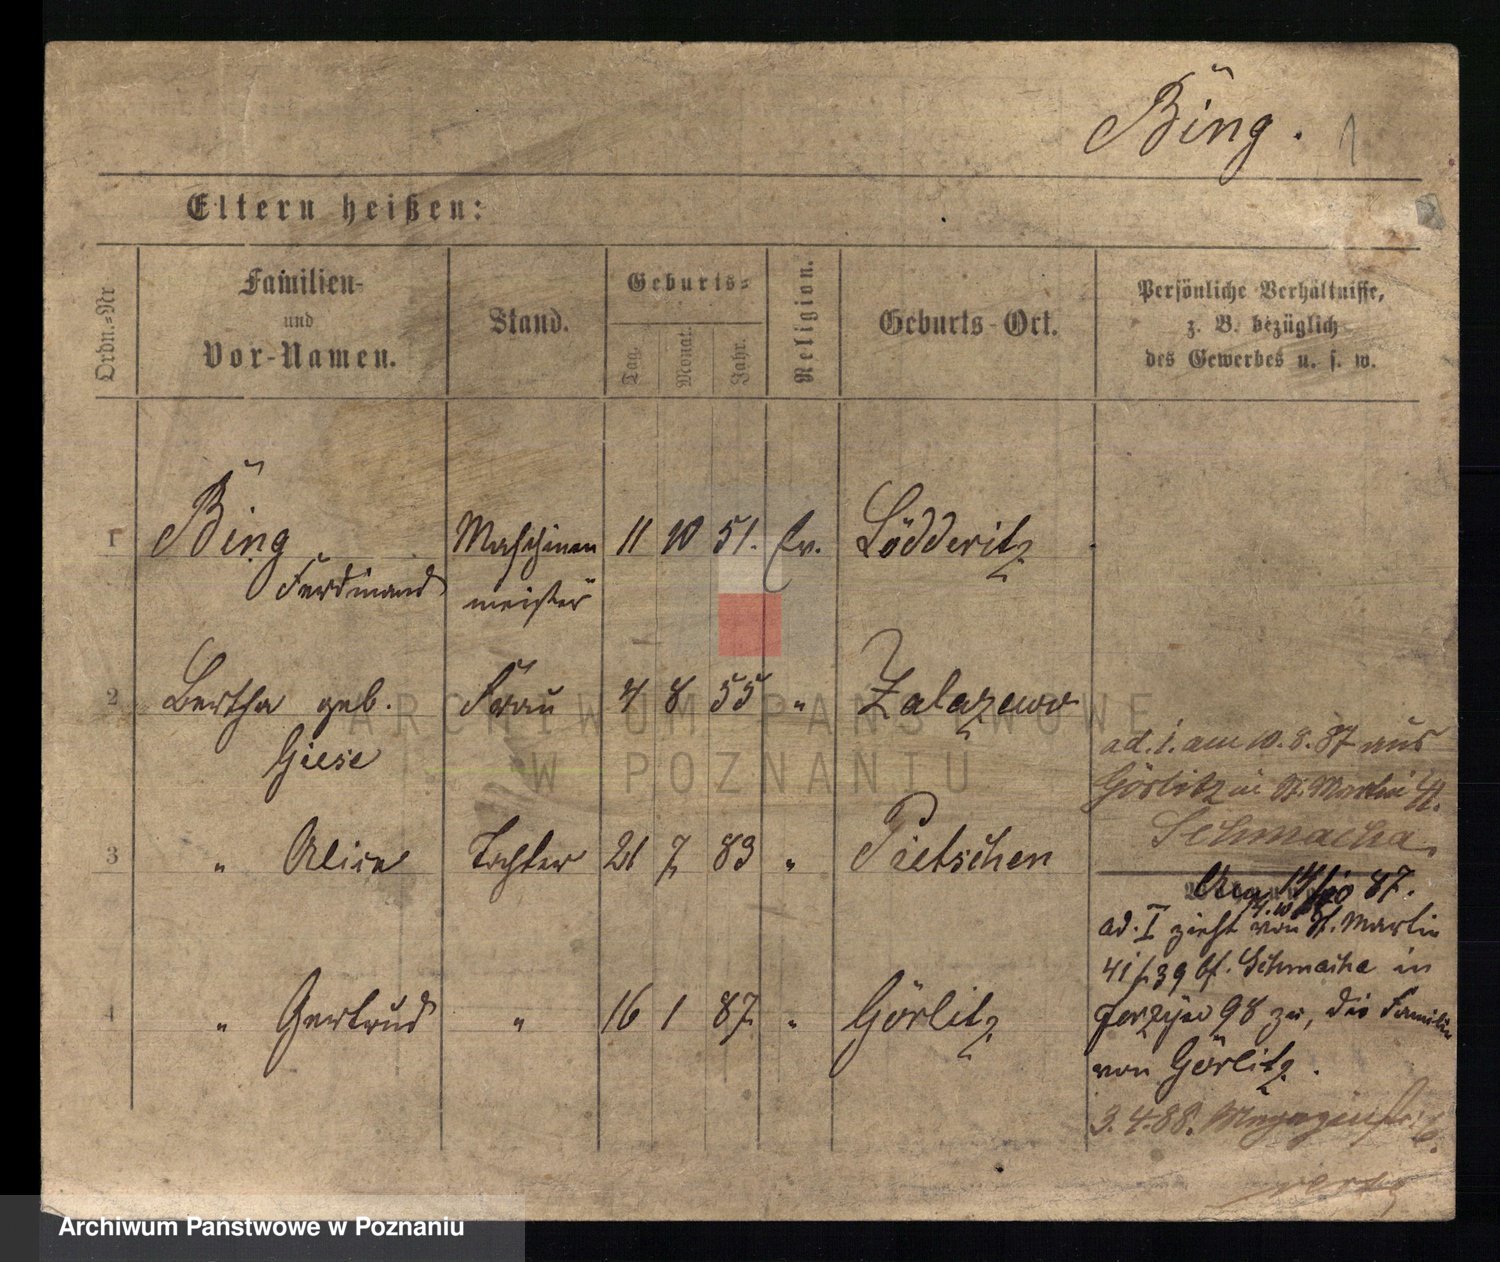 Bing. 1
Eltern heißen:
Ordn.-Nr
Familien-
und
Vor-Namen.
Stand.
Geburts-
Tag. Monat. Jahr.
Religion.
Geburts-Ort.
Persönliche Verhältnisse,
z. B. bezüglich
des Gewerbes u. s. w.
1 Bing Maschinen 11 10 51. Ev. Lödderitz
Ferdinand meister
2 Bertha geb. Frau 4 8 55 " Zalazewo
Giese
ad. 1. am 10. 8. 87 aus
Görlitz in St. Martin 41.
Schmacha.
3 " Alice Tochter 21 7 83 " Pietschen
14/10 87.
ad. I zieht von St. Martin
41/39 bf. Schmacha in
98 zu, die Familie
von Görlitz.
4 " Gertrud " 16 1 87 " Görlitz
3.4.88.
verte
ARCHIWUM PAŃSTWOWE
W POZNANIU
Archiwum Państwowe w Poznaniu